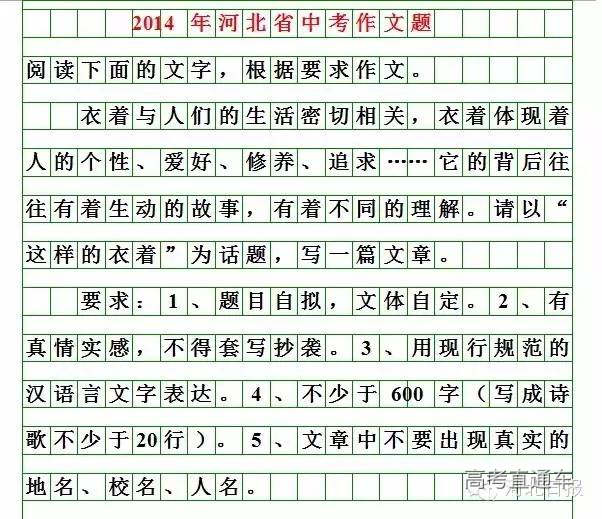 2014 年河北省中考作文题
阅读下面的文字，根据要求作文。
衣着与人们的生活密切相关，衣着体现着
人的个性、爱好、修养、追求……它的背后往
往有着生动的故事，有着不同的理解。请以“
这样的衣着”为话题，写一篇文章。
要求：1、题目自拟，文体自定。2、有
真情实感，不得套写抄袭。3、用现行规范的
汉语言文字表达。4、不少于 600 字（写成诗
歌不少于20行）。5、文章中不要出现真实的
地名、校名、人名。
高考直通车
河北日报